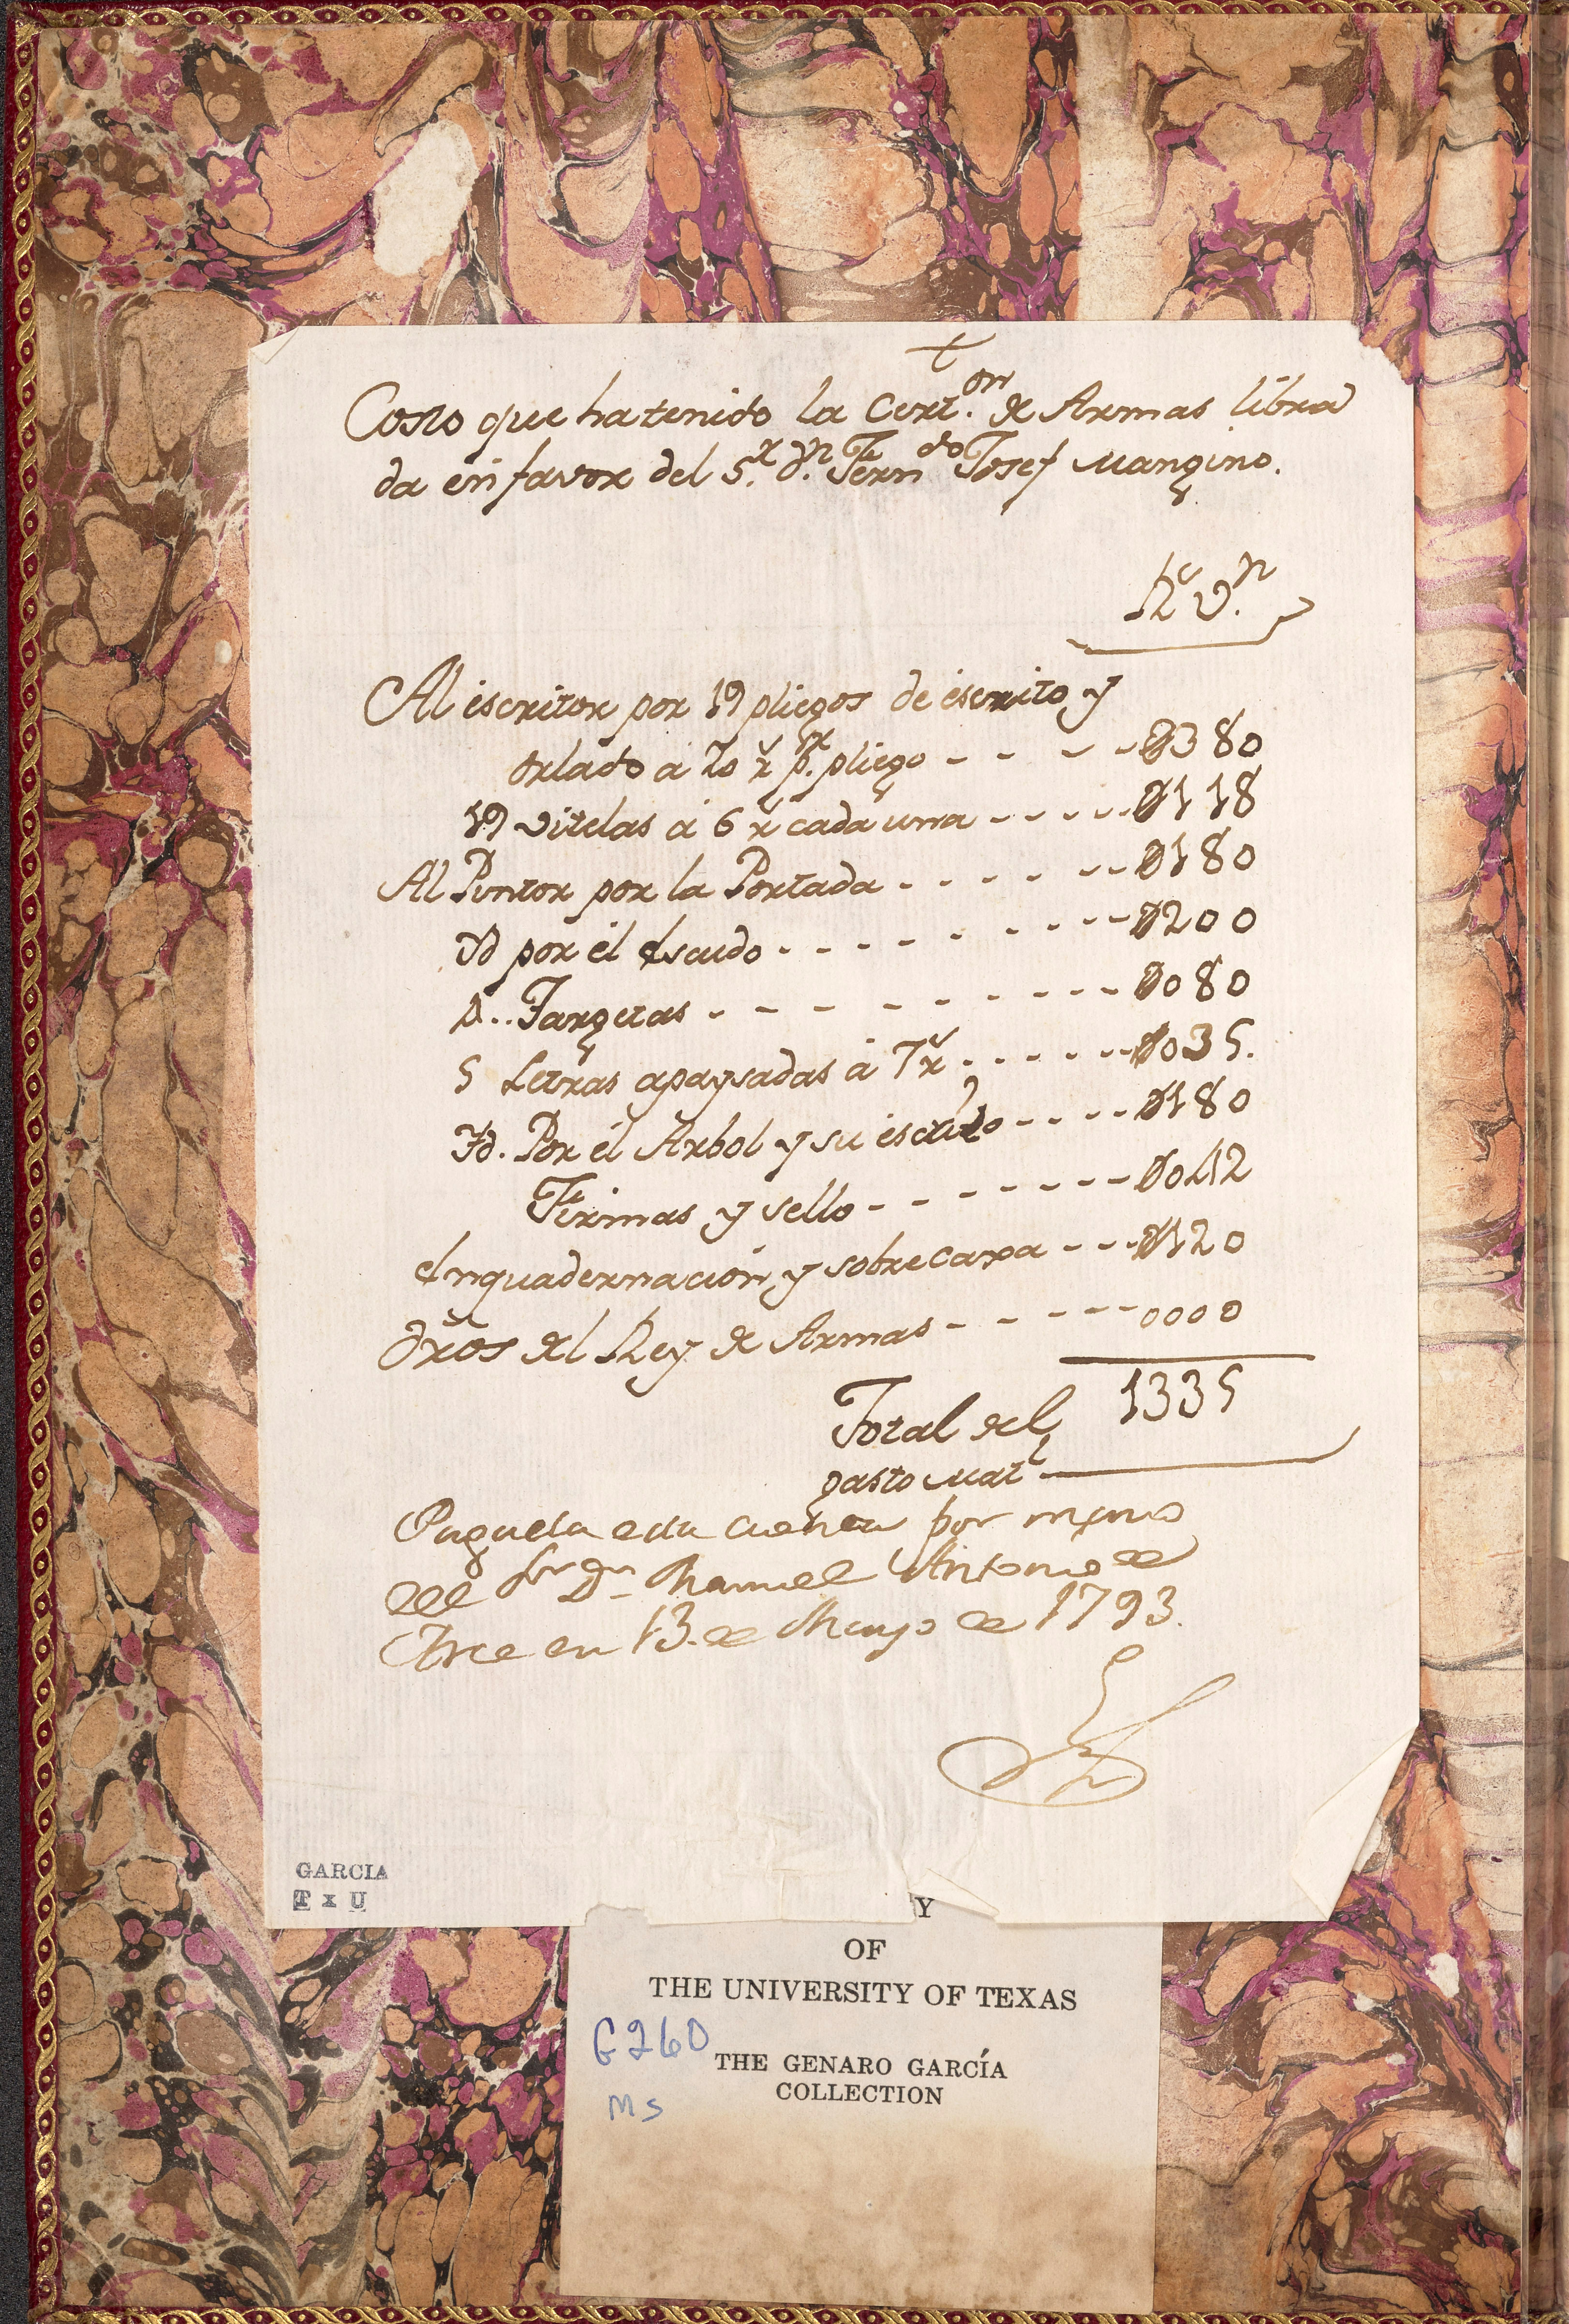 †
Costo que ha tenido la Cert.on de Armas libra
da en favor del S.r d.n Fern.do Josef Mangino.
Rs v.n
Al escritor por 19 pliegos de escrito y
orlado á 20 rs p.r pliego - - - - - 0380
19 vitelas á 6 rs cada una - - - - - 0118
Al Pintor por la Portada - - - - - - - 0180
Yd por el Escudo - - - - - - - - - 0200
4.. Targetas - - - - - - - - - - 0080
5 Letras apaysadas á 7 rs - - - - - - 0035.
Yd. Por el Arbol y su escrito - - - - 0180
Firmas y sello - - - - - - - - 0042
Enquadernacion, y sobrecaxa - - - 0120
dros del Rey de Armas - - - - - - 0000
Total del 1335
gasto mat.l
Pagada esta cuenta por mano
del Sor Dn Manuel Antonio de
Arce en 13. de Mayo de 1793.
GARCIA
TxU
Y
OF
THE UNIVERSITY OF TEXAS
G260
THE GENARO GARCÍA
COLLECTION
Ms